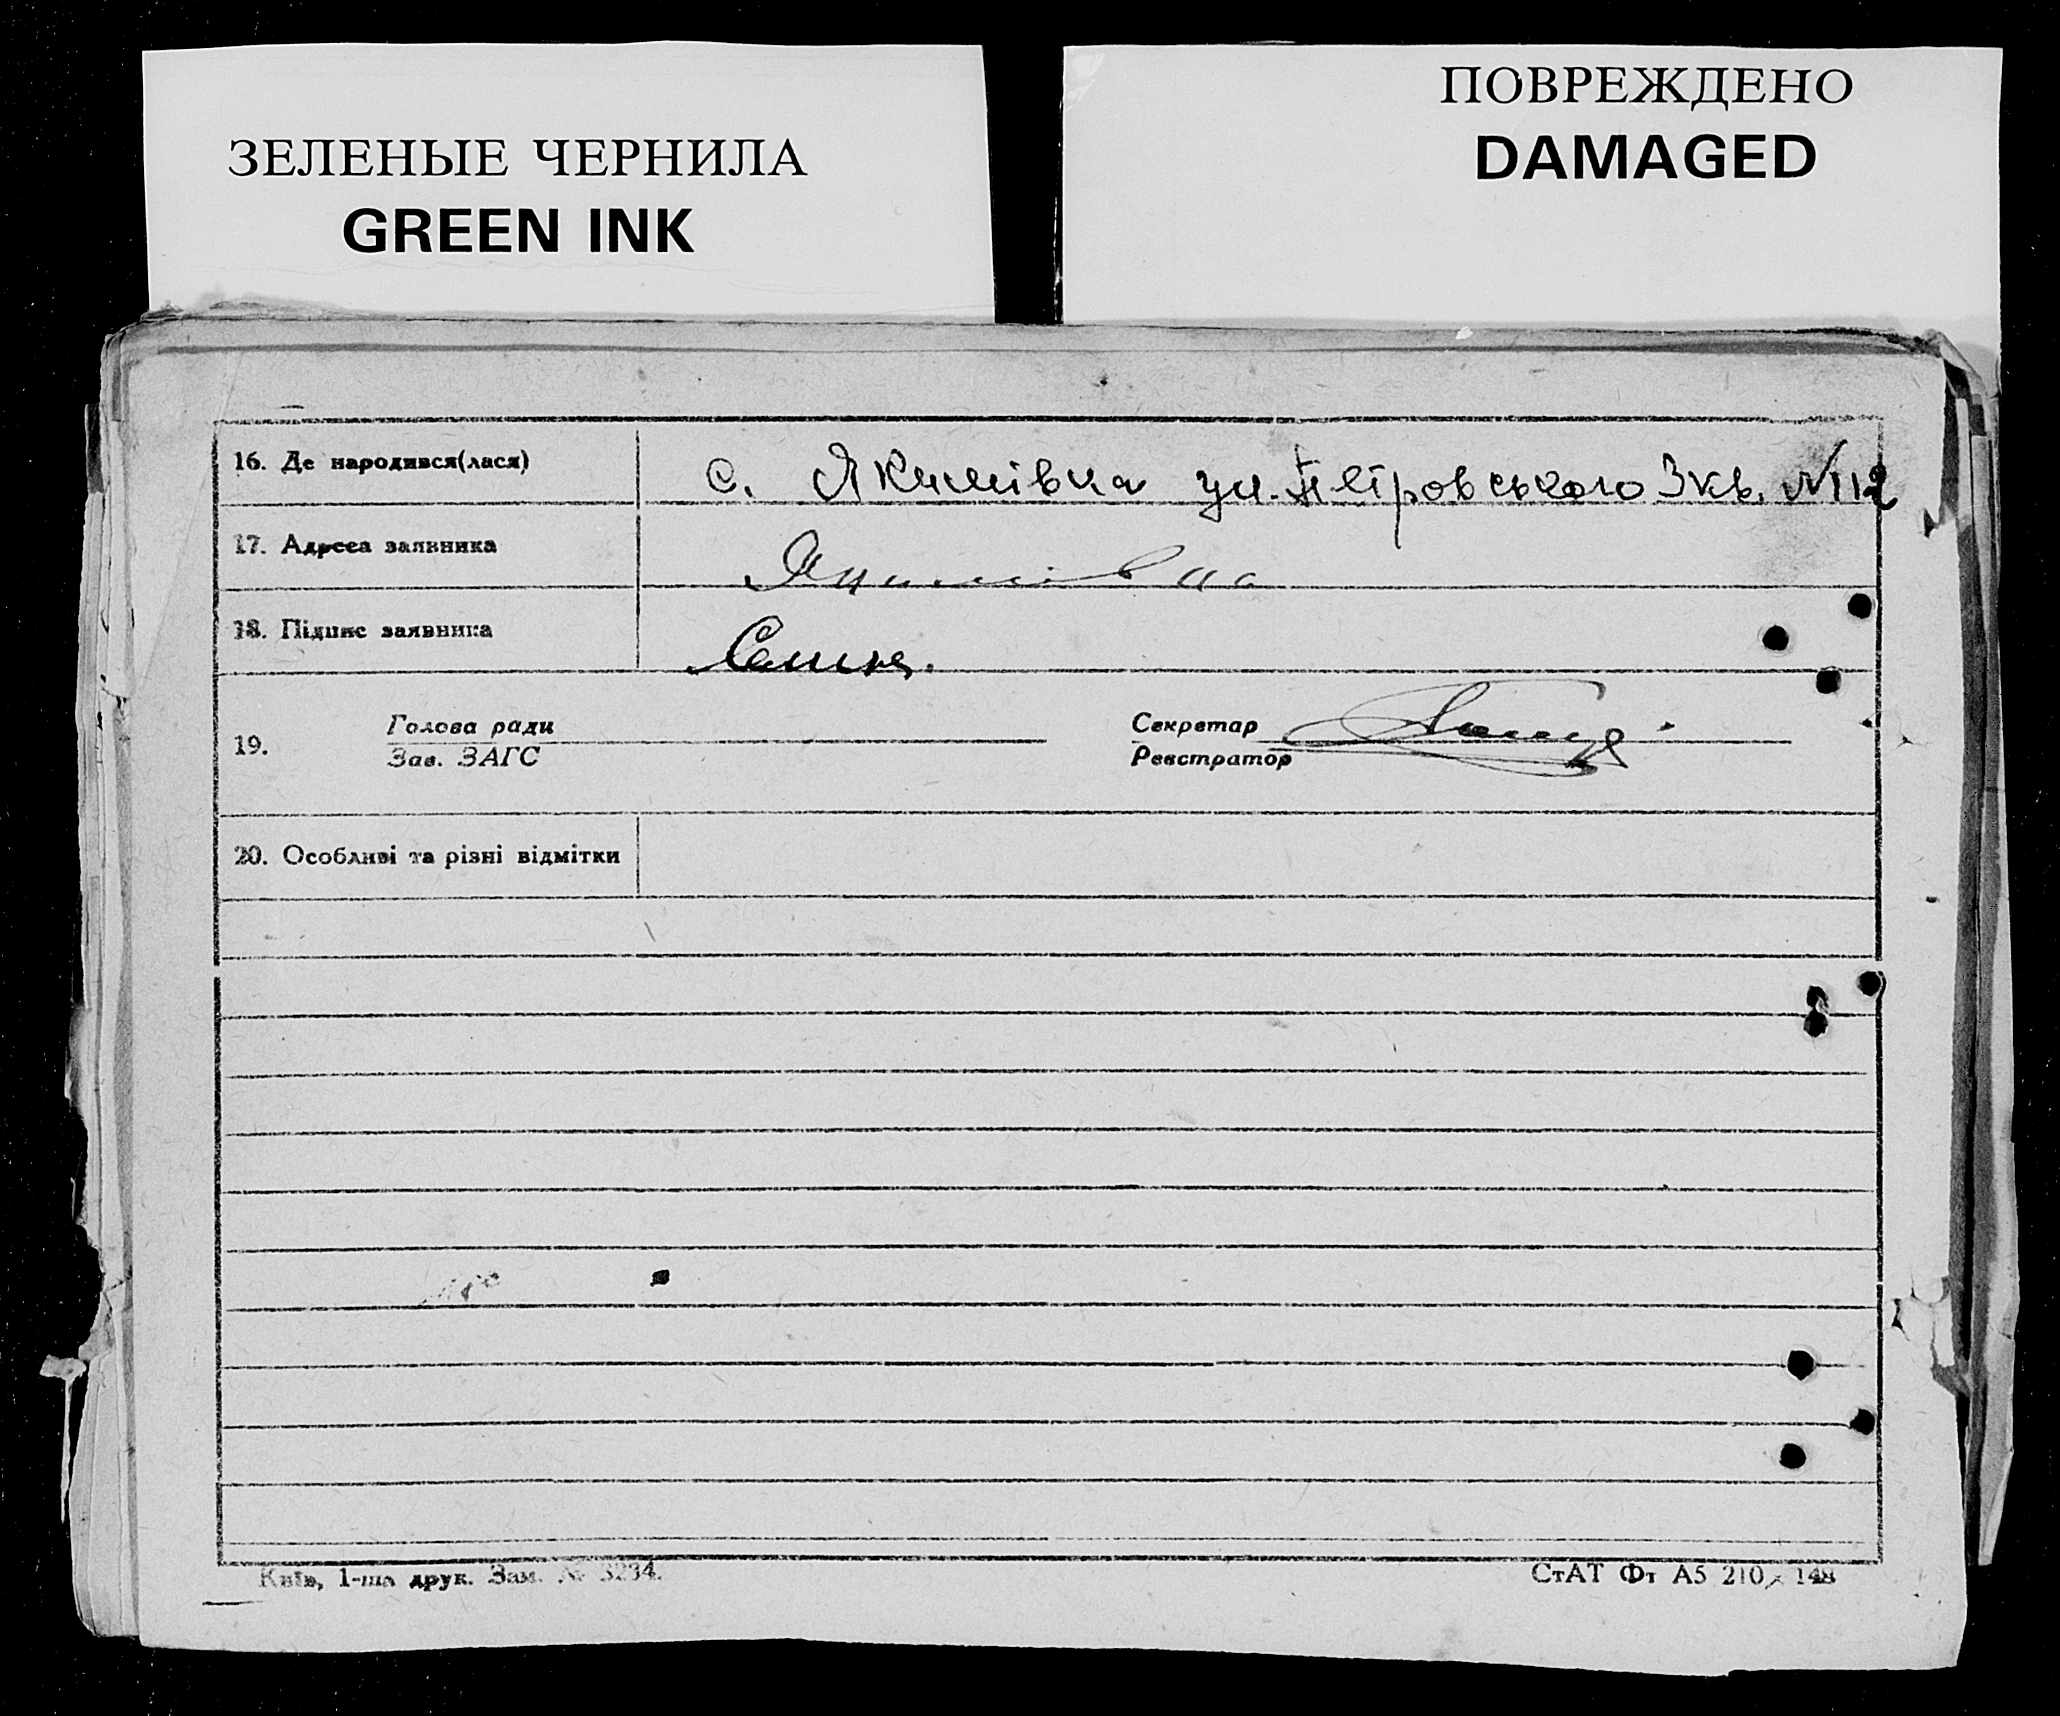 ЗЕЛЕНЫЕ ЧЕРНИЛА
GREEN INK
ПОВРЕЖДЕНО
DAMAGED
16. Де народився(лася) с. Якимівка ул. Петровського 3 кв. №112
17. Адреса заявника Якимовка
18. Підпис заявника
19. Голова ради
Зав. ЗАГС
Секретар
Реєстратор
20. Особливі та різні відмітки
Київ, 1-ша друк. Зам. № 3234.
СтАТ Фт А5 210 × 148